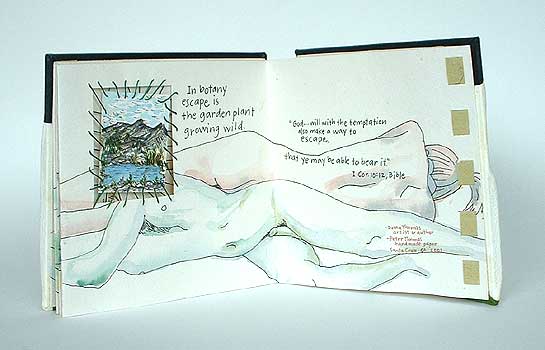 In botany
escape is
the garden plant
growing wild.
"God...will with the temptation
also make a way to
escape,
that ye may be able to bear it."
I Cor. 10:12, Bible
-Donna Thomas
artist & author
-Peter Thomas
handmade paper
Santa Cruz, CA. 2001